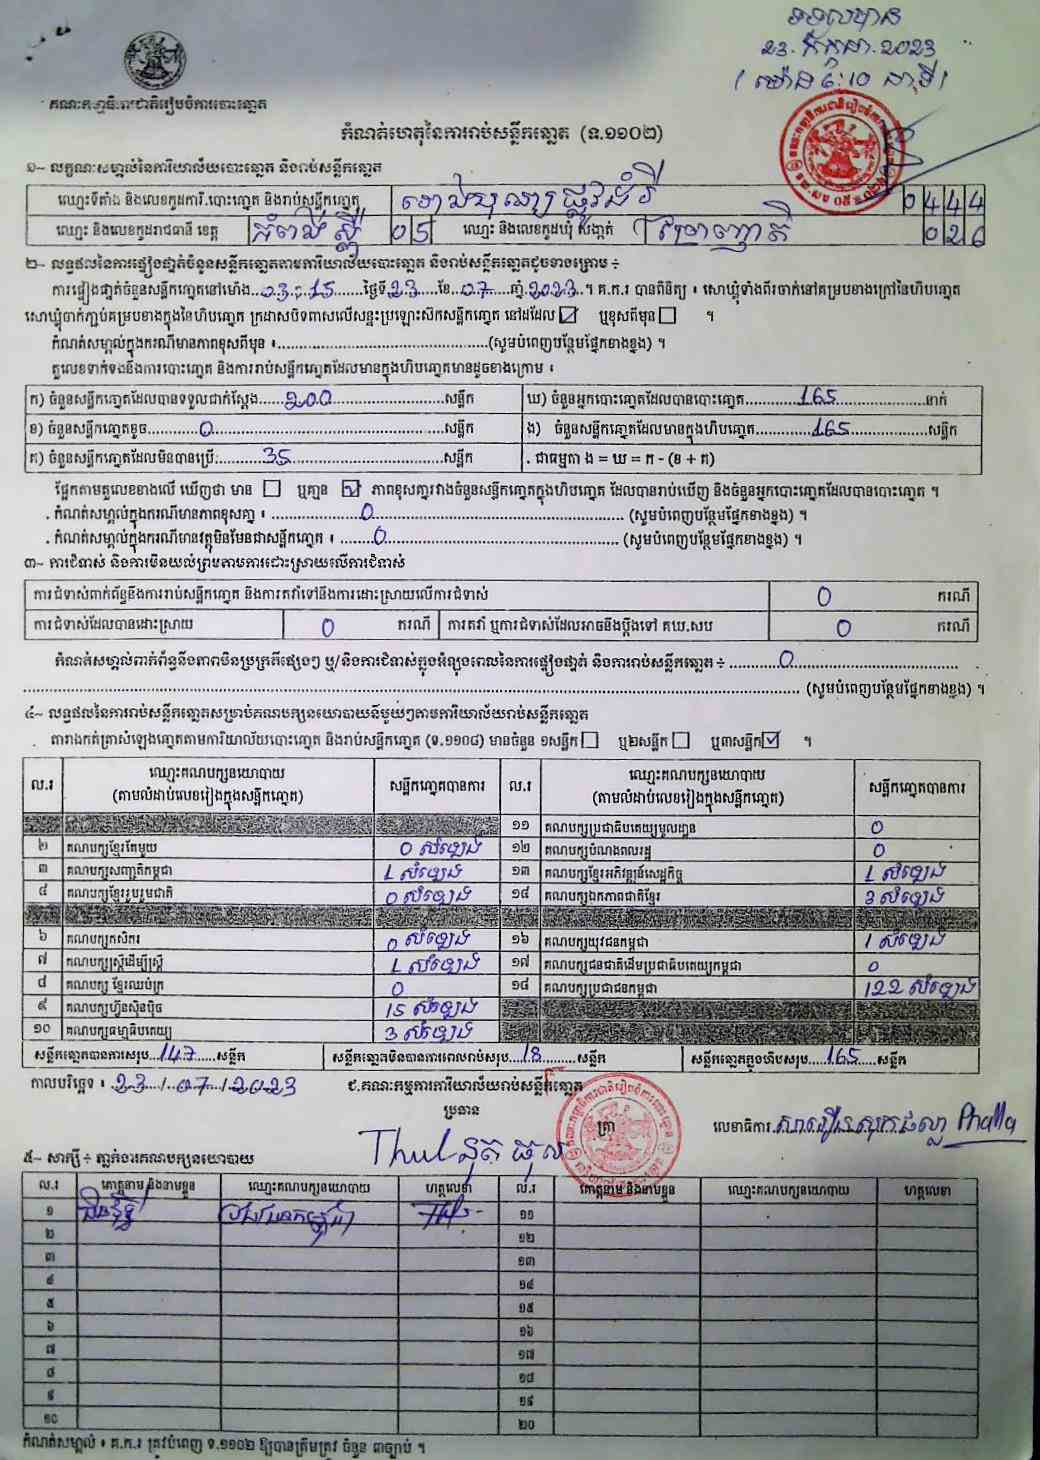 ទទួលបាន
23. កក្កដា. 2023
(ម៉ោង 6:10 នាទី)
គណៈកម្មាធិការជាតិរៀបចំការបោះឆ្នោត
កំណត់ហេតុនៃការរាប់សន្លឹកឆ្នោត (ទ.១១០២)
១~ លក្ខណៈសម្គាល់នៃការិយាល័យបោះឆ្នោត និងរាប់សន្លឹកឆ្នោត
ឈ្មោះទីតាំង និងលេខកូដការិ.បោះឆ្នោត និងរាប់សន្លឹកឆ្នោត 0444
ឈ្មោះ និងលេខកូដរាជធានី ខេត្ត កំពង់ស្ពឺ 05 ឈ្មោះ និងលេខកូដឃុំ សង្កាត់ 026
២~ លទ្ធផលនៃការផ្ទៀងផ្ទាត់ចំនួនសន្លឹកឆ្នោតតាមការិយាល័យបោះឆ្នោត និងរាប់សន្លឹកឆ្នោតដូចខាងក្រោម ÷
ការផ្ទៀងផ្ទាត់ចំនួនសន្លឹកឆ្នោតនៅម៉ោង...03:15......ថ្ងៃទី.23......ខែ...07.....ឆ្នាំ.2023..។ គ.ក.រ បានពិនិត្យ ៖ សោឃ្លុំទាំងពីរចាក់នៅគម្របខាងក្រៅនៃហិបឆ្នោត
សោឃ្លុំចាក់ភ្ជាប់គម្របខាងក្នុងនៃហិបឆ្នោត ក្រដាសបិទពាសលើសន្ទះប្រឡោះស៊កសន្លឹកឆ្នោត នៅដដែល ☑ ឬខុសពីមុន ☐ ។
កំណត់សម្គាល់ក្នុងករណីមានភាពខុសពីមុន ៖......................................(សូមបំពេញបន្ថែមផ្នែកខាងខ្នង) ។
តួលេខទាក់ទងនឹងការបោះឆ្នោត និងការរាប់សន្លឹកឆ្នោតដែលមានក្នុងហិបឆ្នោតមានដូចខាងក្រោម ៖
ក) ចំនួនសន្លឹកឆ្នោតដែលបានទទួលជាក់ស្តែង......200......សន្លឹក ឃ) ចំនួនអ្នកបោះឆ្នោតដែលបានបោះឆ្នោត......165......នាក់
ខ) ចំនួនសន្លឹកឆ្នោតខូច......0......សន្លឹក ង) ចំនួនសន្លឹកឆ្នោតដែលមានក្នុងហិបឆ្នោត......165......សន្លឹក
គ) ចំនួនសន្លឹកឆ្នោតដែលមិនបានប្រើ:......35......សន្លឹក . ជាធម្មតា ង = ឃ = ក - (ខ + គ)
ផ្អែកតាមតួលេខខាងលើ ឃើញថា មាន ☐ ឬគ្មាន ☑ ភាពខុសគ្នារវាងចំនួនសន្លឹកឆ្នោតក្នុងហិបឆ្នោត ដែលបានរាប់ឃើញ និងចំនួនអ្នកបោះឆ្នោតដែលបានបោះឆ្នោត ។
. កំណត់សម្គាល់ក្នុងករណីមានភាពខុសគ្នា ៖ ......0...... (សូមបំពេញបន្ថែមផ្នែកខាងខ្នង) ។
. កំណត់សម្គាល់ក្នុងករណីមានវត្ថុមិនមែនជាសន្លឹកឆ្នោត ៖ ......0...... (សូមបំពេញបន្ថែមផ្នែកខាងខ្នង) ។
៣~ ការជំទាស់ និងការមិនយល់ព្រមតាមការដោះស្រាយលើការជំទាស់
ការជំទាស់ពាក់ព័ន្ធនឹងការរាប់សន្លឹកឆ្នោត និងការតវ៉ាទៅនឹងការដោះស្រាយលើការជំទាស់ 0 ករណី
ការជំទាស់ដែលបានដោះស្រាយ 0 ករណី ការតវ៉ា ឬការជំទាស់ដែលអាចនឹងប្តឹងទៅ គឃ.សប 0 ករណី
កំណត់សម្គាល់ពាក់ព័ន្ធនឹងភាពមិនប្រក្រតីផ្សេងៗ ឬ/និងការជំទាស់ក្នុងអំឡុងពេលនៃការផ្ទៀងផ្ទាត់ និងការរាប់សន្លឹកឆ្នោត÷ ......0......
...... (សូមបំពេញបន្ថែមផ្នែកខាងខ្នង) ។
៤~ លទ្ធផលនៃការរាប់សន្លឹកឆ្នោតសម្រាប់គណបក្សនយោបាយនីមួយៗតាមការិយាល័យរាប់សន្លឹកឆ្នោត
តារាងកត់ត្រាសំឡេងឆ្នោតតាមការិយាល័យបោះឆ្នោត និងរាប់សន្លឹកឆ្នោត (ទ.១១០៨) មានចំនួន ១សន្លឹក ☐ ឬ២សន្លឹក ☐ ឬ៣សន្លឹក ☑ ។
ល.រ ឈ្មោះគណបក្សនយោបាយ (តាមលំដាប់លេខរៀងក្នុងសន្លឹកឆ្នោត) សន្លឹកឆ្នោតបានការ ល.រ ឈ្មោះគណបក្សនយោបាយ (តាមលំដាប់លេខរៀងក្នុងសន្លឹកឆ្នោត) សន្លឹកឆ្នោតបានការ
១១ គណបក្សប្រជាធិបតេយ្យមូលដ្ឋាន 0
២ គណបក្សខ្មែរតែមួយ 0 សំឡេង ១២ គណបក្សបំណងពលរដ្ឋ 0
៣ គណបក្សសញ្ជាតិកម្ពុជា 1 សំឡេង ១៣ គណបក្សខ្មែរអភិវឌ្ឍន៍សេដ្ឋកិច្ច 1 សំឡេង
៤ គណបក្សខ្មែររួបរួមជាតិ 0 សំឡេង ១៤ គណបក្សឯកភាពជាតិខ្មែរ 3 សំឡេង
៦ គណបក្សកសិករ 0 សំឡេង ១៦ គណបក្សយុវជនកម្ពុជា 1 សំឡេង
៧ គណបក្សស្ត្រីដើម្បីស្ត្រី 1 សំឡេង ១៧ គណបក្សជនជាតិដើមប្រជាធិបតេយ្យកម្ពុជា 0
៨ គណបក្ស ខ្មែរឈប់ក្រ 0 ១៨ គណបក្សប្រជាជនកម្ពុជា 122 សំឡេង
៩ គណបក្សហ៊្វុនស៊ិនប៉ិច 15 សំឡេង
១០ គណបក្សធម្មាធិបតេយ្យ 3 សំឡេង
សន្លឹកឆ្នោតបានការសរុប...147......សន្លឹក សន្លឹកឆ្នោតមិនបានការពេលរាប់សរុប...18......សន្លឹក សន្លឹកឆ្នោតក្នុងហិបសរុប...165......សន្លឹក
កាលបរិច្ឆេទ ៖ 23 / 07 / 2023 ជ.គណៈកម្មការការិយាល័យរាប់សន្លឹកឆ្នោត
ប្រធាន
ត្រា លេខាធិការ Phalla
Thul នុត ធុល
៥~ សាក្សី ÷ ភ្នាក់ងារគណបក្សនយោបាយ
ល.រ គោត្តនាម និងនាមខ្លួន ឈ្មោះគណបក្សនយោបាយ ហត្ថលេខា ល.រ គោត្តនាម និងនាមខ្លួន ឈ្មោះគណបក្សនយោបាយ ហត្ថលេខា
១ ១១
២ ១២
៣ ១៣
៤ ១៤
៥ ១៥
៦ ១៦
៧ ១៧
៨ ១៨
៩ ១៩
១០ ២០
កំណត់សម្គាល់ ៖ គ.ក.រ ត្រូវបំពេញ ទ.១១០២ ឱ្យបានត្រឹមត្រូវ ចំនួន ៣ច្បាប់ ។